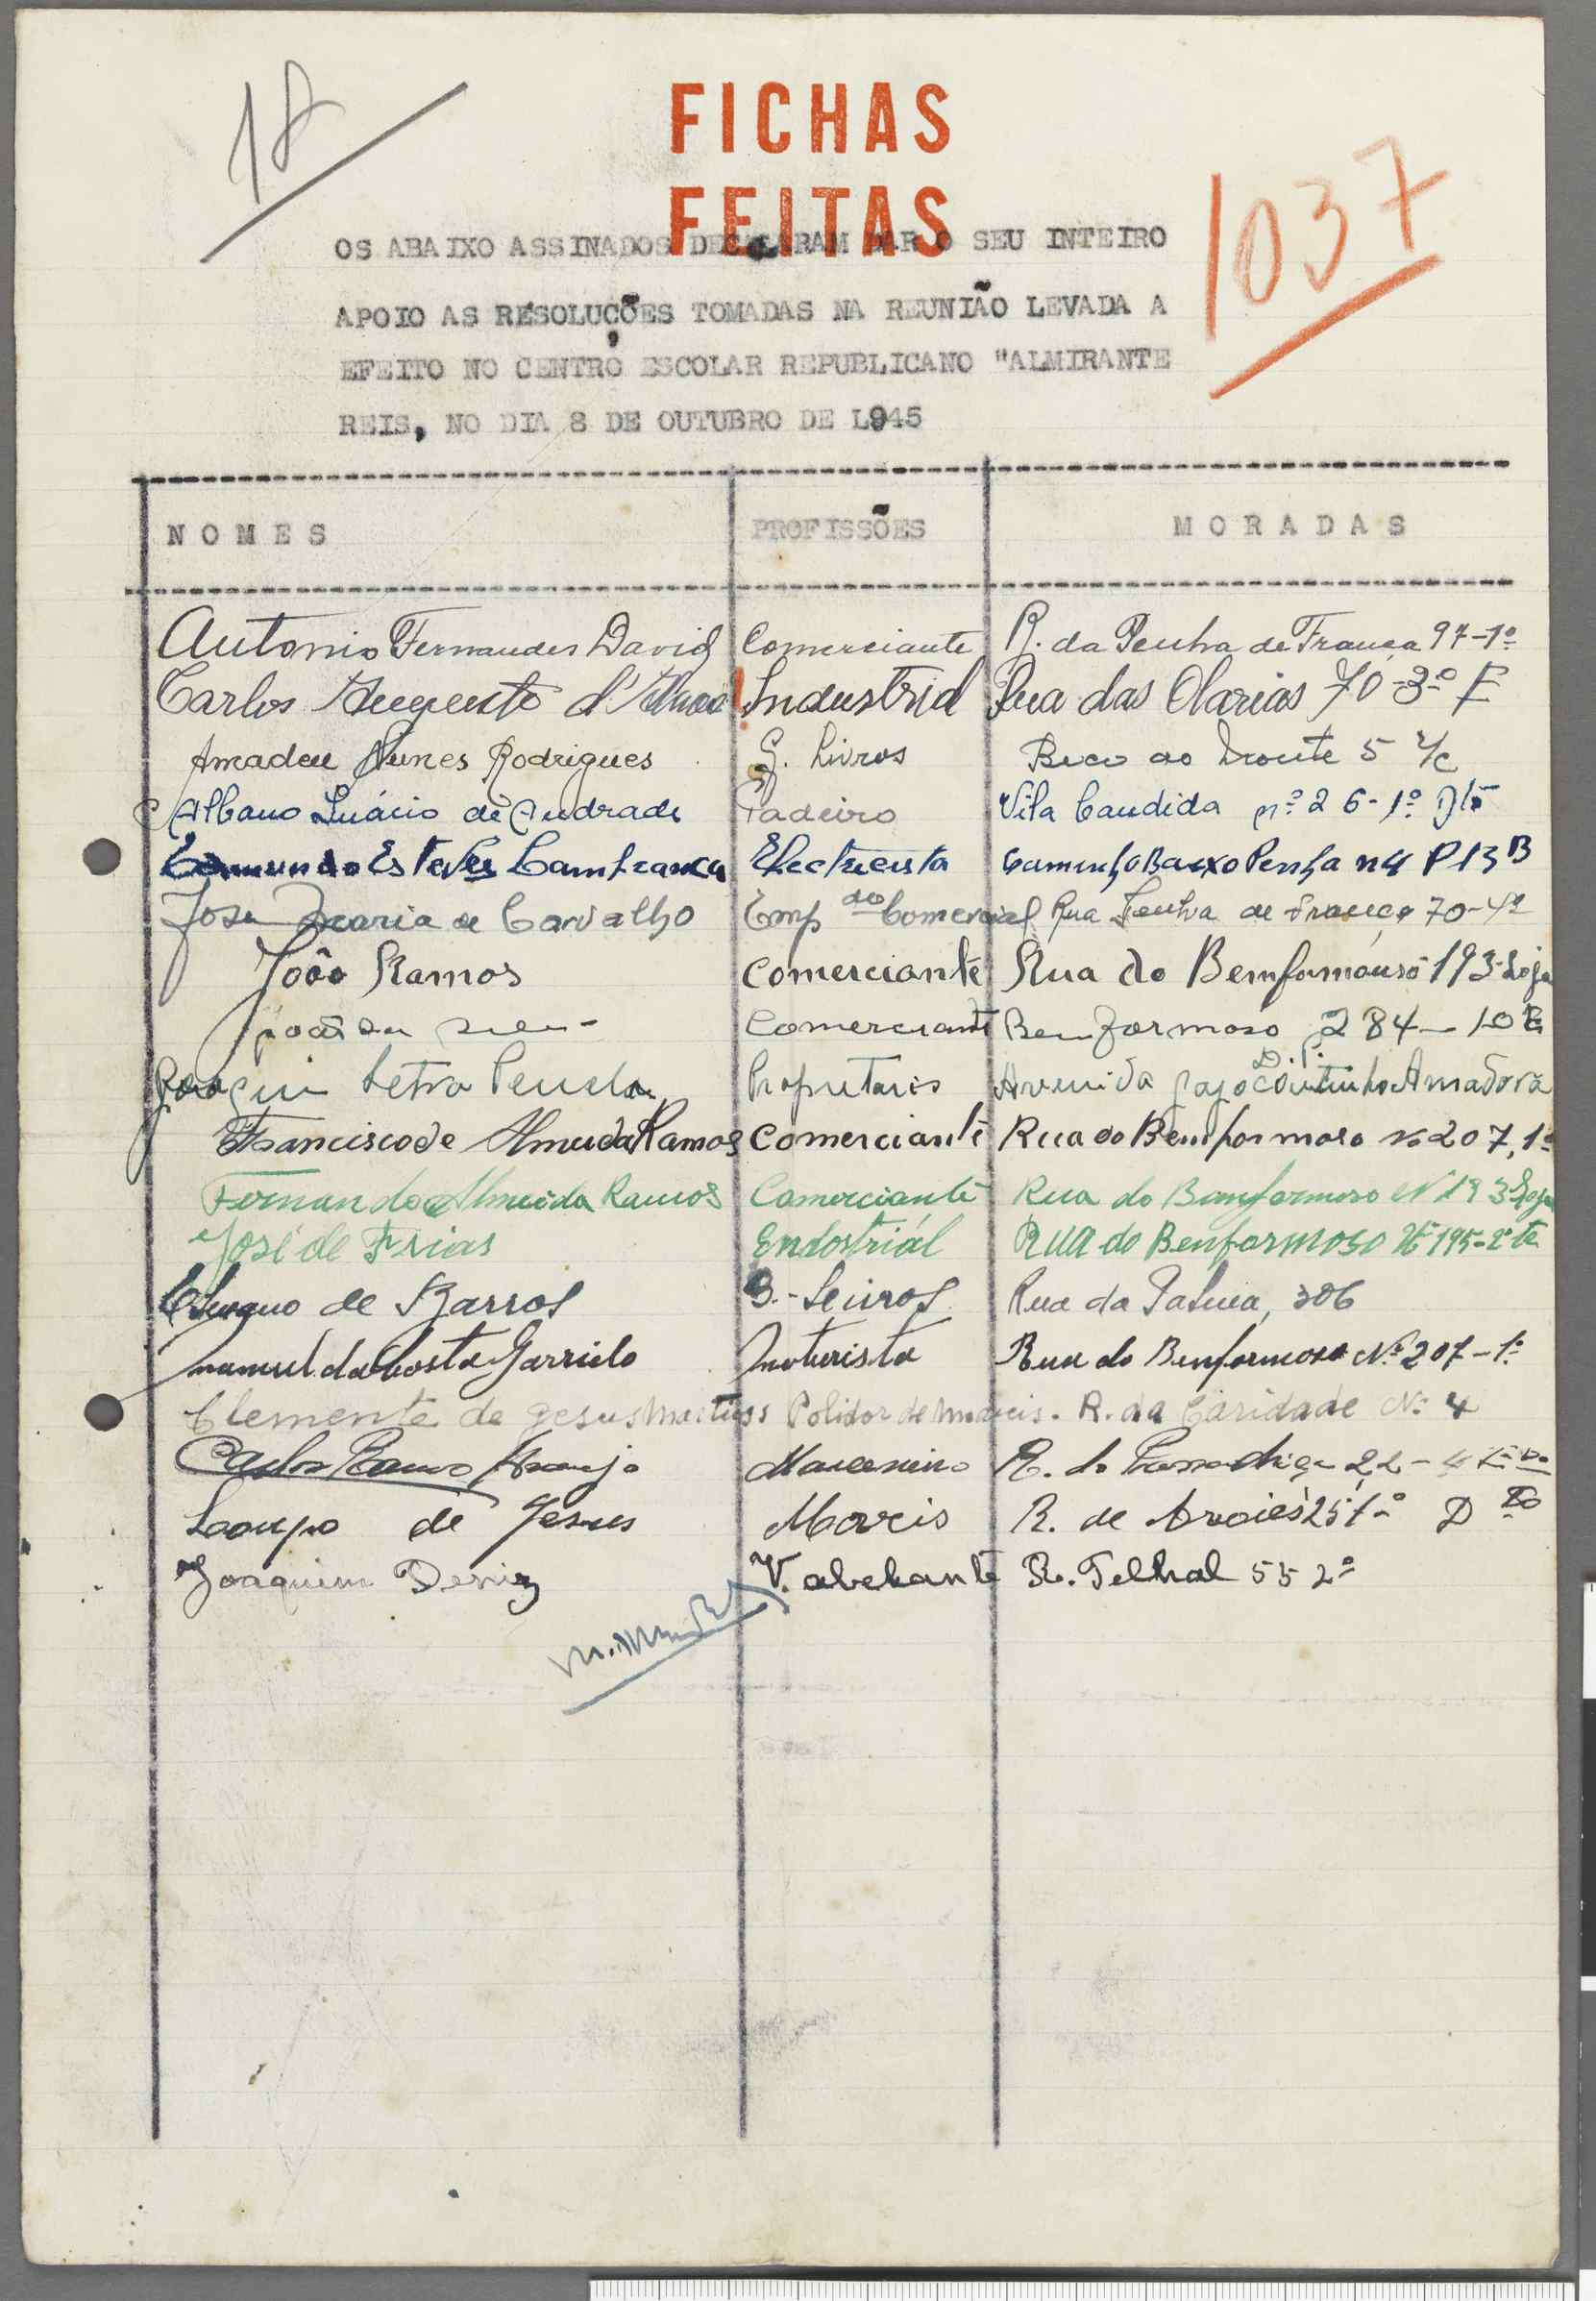 18
FICHAS
FEITAS
1037
OS ABAIXO ASSINADOS DECLARAM DAR O SEU INTEIRO
APOIO AS RESOLUÇÕES TOMADAS NA REUNIÃO LEVADA A
EFEITO NO CENTRO ESCOLAR REPUBLICANO "ALMIRANTE
REIS, NO DIA 8 DE OUTUBRO DE L945
NOMES PROFISSÕES MORADAS
Antonio Fernandes David Comerciante R. da Penha de França 97-1º
Carlos Augusto Industrial Rua das Olarias 70-3º E
Amadeu Nunes Rodrigues G. Livros Beco do 5 r/c
Albano de Andrade Padeiro Vila Candida nº 26-1º Dto
Esteves Electricista Caminho Baixo Penha n4 P13B
José Maria de Carvalho Empdo Comercial Rua Penha de França 70-4º
João Ramos Comerciante Rua do Bemfamouso 193-Loja
Comerciante Bemformoso 284-1º E
Joaquim Propietario Avenida Gago Coutinho D.P. Amadora
Francisco de Almeida Ramos Comerciante Rua do Bemformoso No 207, 1º
Fernando Almeida Ramos Comerciante Rua do Bemformoso Nº 193-Loja
José de Frias Endostriál RUA do Benformoso Nº 195-2º
de Barros G.-Leivros Rua da Palma, 306
Manuel da Costa Garrido Moturista Rua do Benformoso Nº 207-1º
Clemente de Jesus Martins Polidor de Moveis. R. da Caridade Nº 4
Carlos Araujo Marceneiro R. do 22-4º
de Jesus Moveis R. de Aroios 251-º D to
Joaquim Deniz V. abelante R. Telhal 55 2º